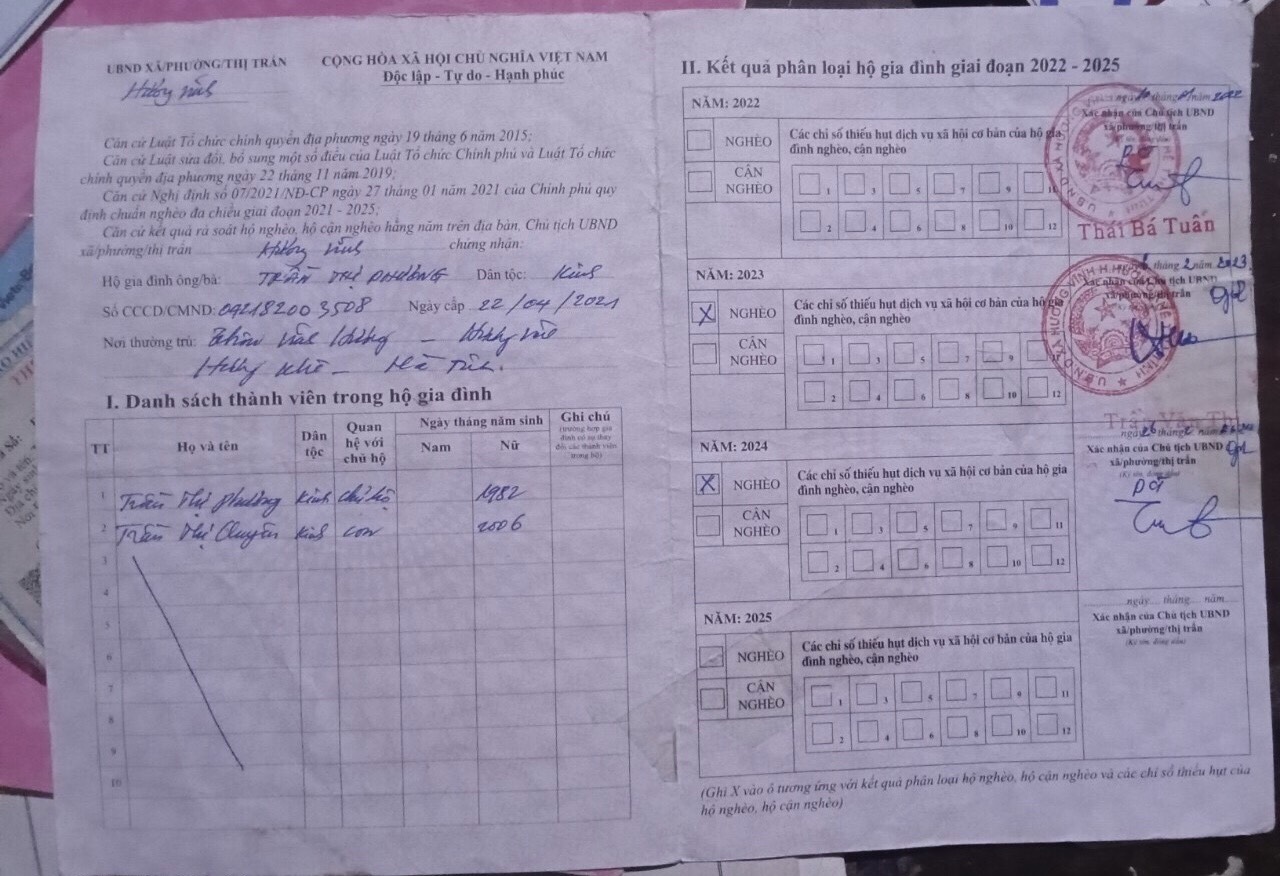 UBND XÃ/PHƯỜNG/THỊ TRẤN
Hương Vĩnh
CỘNG HÒA XÃ HỘI CHỦ NGHĨA VIỆT NAM
Độc lập - Tự do - Hạnh phúc
Căn cứ Luật Tổ chức chính quyền địa phương ngày 19 tháng 6 năm 2015;
Căn cứ Luật sửa đổi, bổ sung một số điều của Luật Tổ chức Chính phủ và Luật Tổ chức
chính quyền địa phương ngày 22 tháng 11 năm 2019;
Căn cứ Nghị định số 07/2021/NĐ-CP ngày 27 tháng 01 năm 2021 của Chính phủ quy
định chuẩn nghèo đa chiều giai đoạn 2021 - 2025;
Căn cứ kết quả rà soát hộ nghèo, hộ cận nghèo hằng năm trên địa bàn, Chủ tịch UBND
xã/phường/thị trấn Hương Vĩnh chứng nhận:
Hộ gia đình ông/bà: TRẦN THỊ PHƯỜNG Dân tộc: Kinh
Số CCCD/CMND: 042182003508 Ngày cấp 22/04/2021
Nơi thường trú: Hương Vĩnh
Hương Khê - Hà Tĩnh.
I. Danh sách thành viên trong hộ gia đình
TT Họ và tên Dân tộc Quan hệ với chủ hộ Ngày tháng năm sinh Nam Nữ Ghi chú
(trường hợp gia đình có sự thay đổi các thành viên trong hộ)
1 Trần Thị Phường Kinh chủ hộ 1982
2 Trần Thị Chuyên Kinh con 2006
3
4
5
6
7
8
9
10
II. Kết quả phân loại hộ gia đình giai đoạn 2022 - 2025
NĂM: 2022
NGHÈO
CẬN NGHÈO
Các chỉ số thiếu hụt dịch vụ xã hội cơ bản của hộ gia
đình nghèo, cận nghèo
1 3 5 7 9 11
2 4 6 8 10 12
ngày 10 tháng 01 năm 2022
Xác nhận của Chủ tịch UBND
xã/phường/thị trấn
Thái Bá Tuấn
NĂM: 2023
X NGHÈO
CẬN NGHÈO
Các chỉ số thiếu hụt dịch vụ xã hội cơ bản của hộ gia
đình nghèo, cận nghèo
1 3 5 7 9
2 4 6 8 10 12
tháng 2 năm 2023
Xác nhận của Chủ tịch UBND
xã/phường/thị trấn
Trần Văn
NĂM: 2024
X NGHÈO
CẬN NGHÈO
Các chỉ số thiếu hụt dịch vụ xã hội cơ bản của hộ gia
đình nghèo, cận nghèo
1 3 5 7 9 11
2 4 6 8 10 12
ngày 26 tháng 2 năm
Xác nhận của Chủ tịch UBND
xã/phường/thị trấn
(Ký tên, đóng dấu)
NĂM: 2025
NGHÈO
CẬN NGHÈO
Các chỉ số thiếu hụt dịch vụ xã hội cơ bản của hộ gia
đình nghèo, cận nghèo
1 3 5 7 9 11
2 4 6 8 10 12
ngày.... tháng.... năm....
Xác nhận của Chủ tịch UBND
xã/phường/thị trấn
(Ký tên, đóng dấu)
(Ghi X vào ô tương ứng với kết quả phân loại hộ nghèo, hộ cận nghèo và các chỉ số thiếu hụt của
hộ nghèo, hộ cận nghèo)